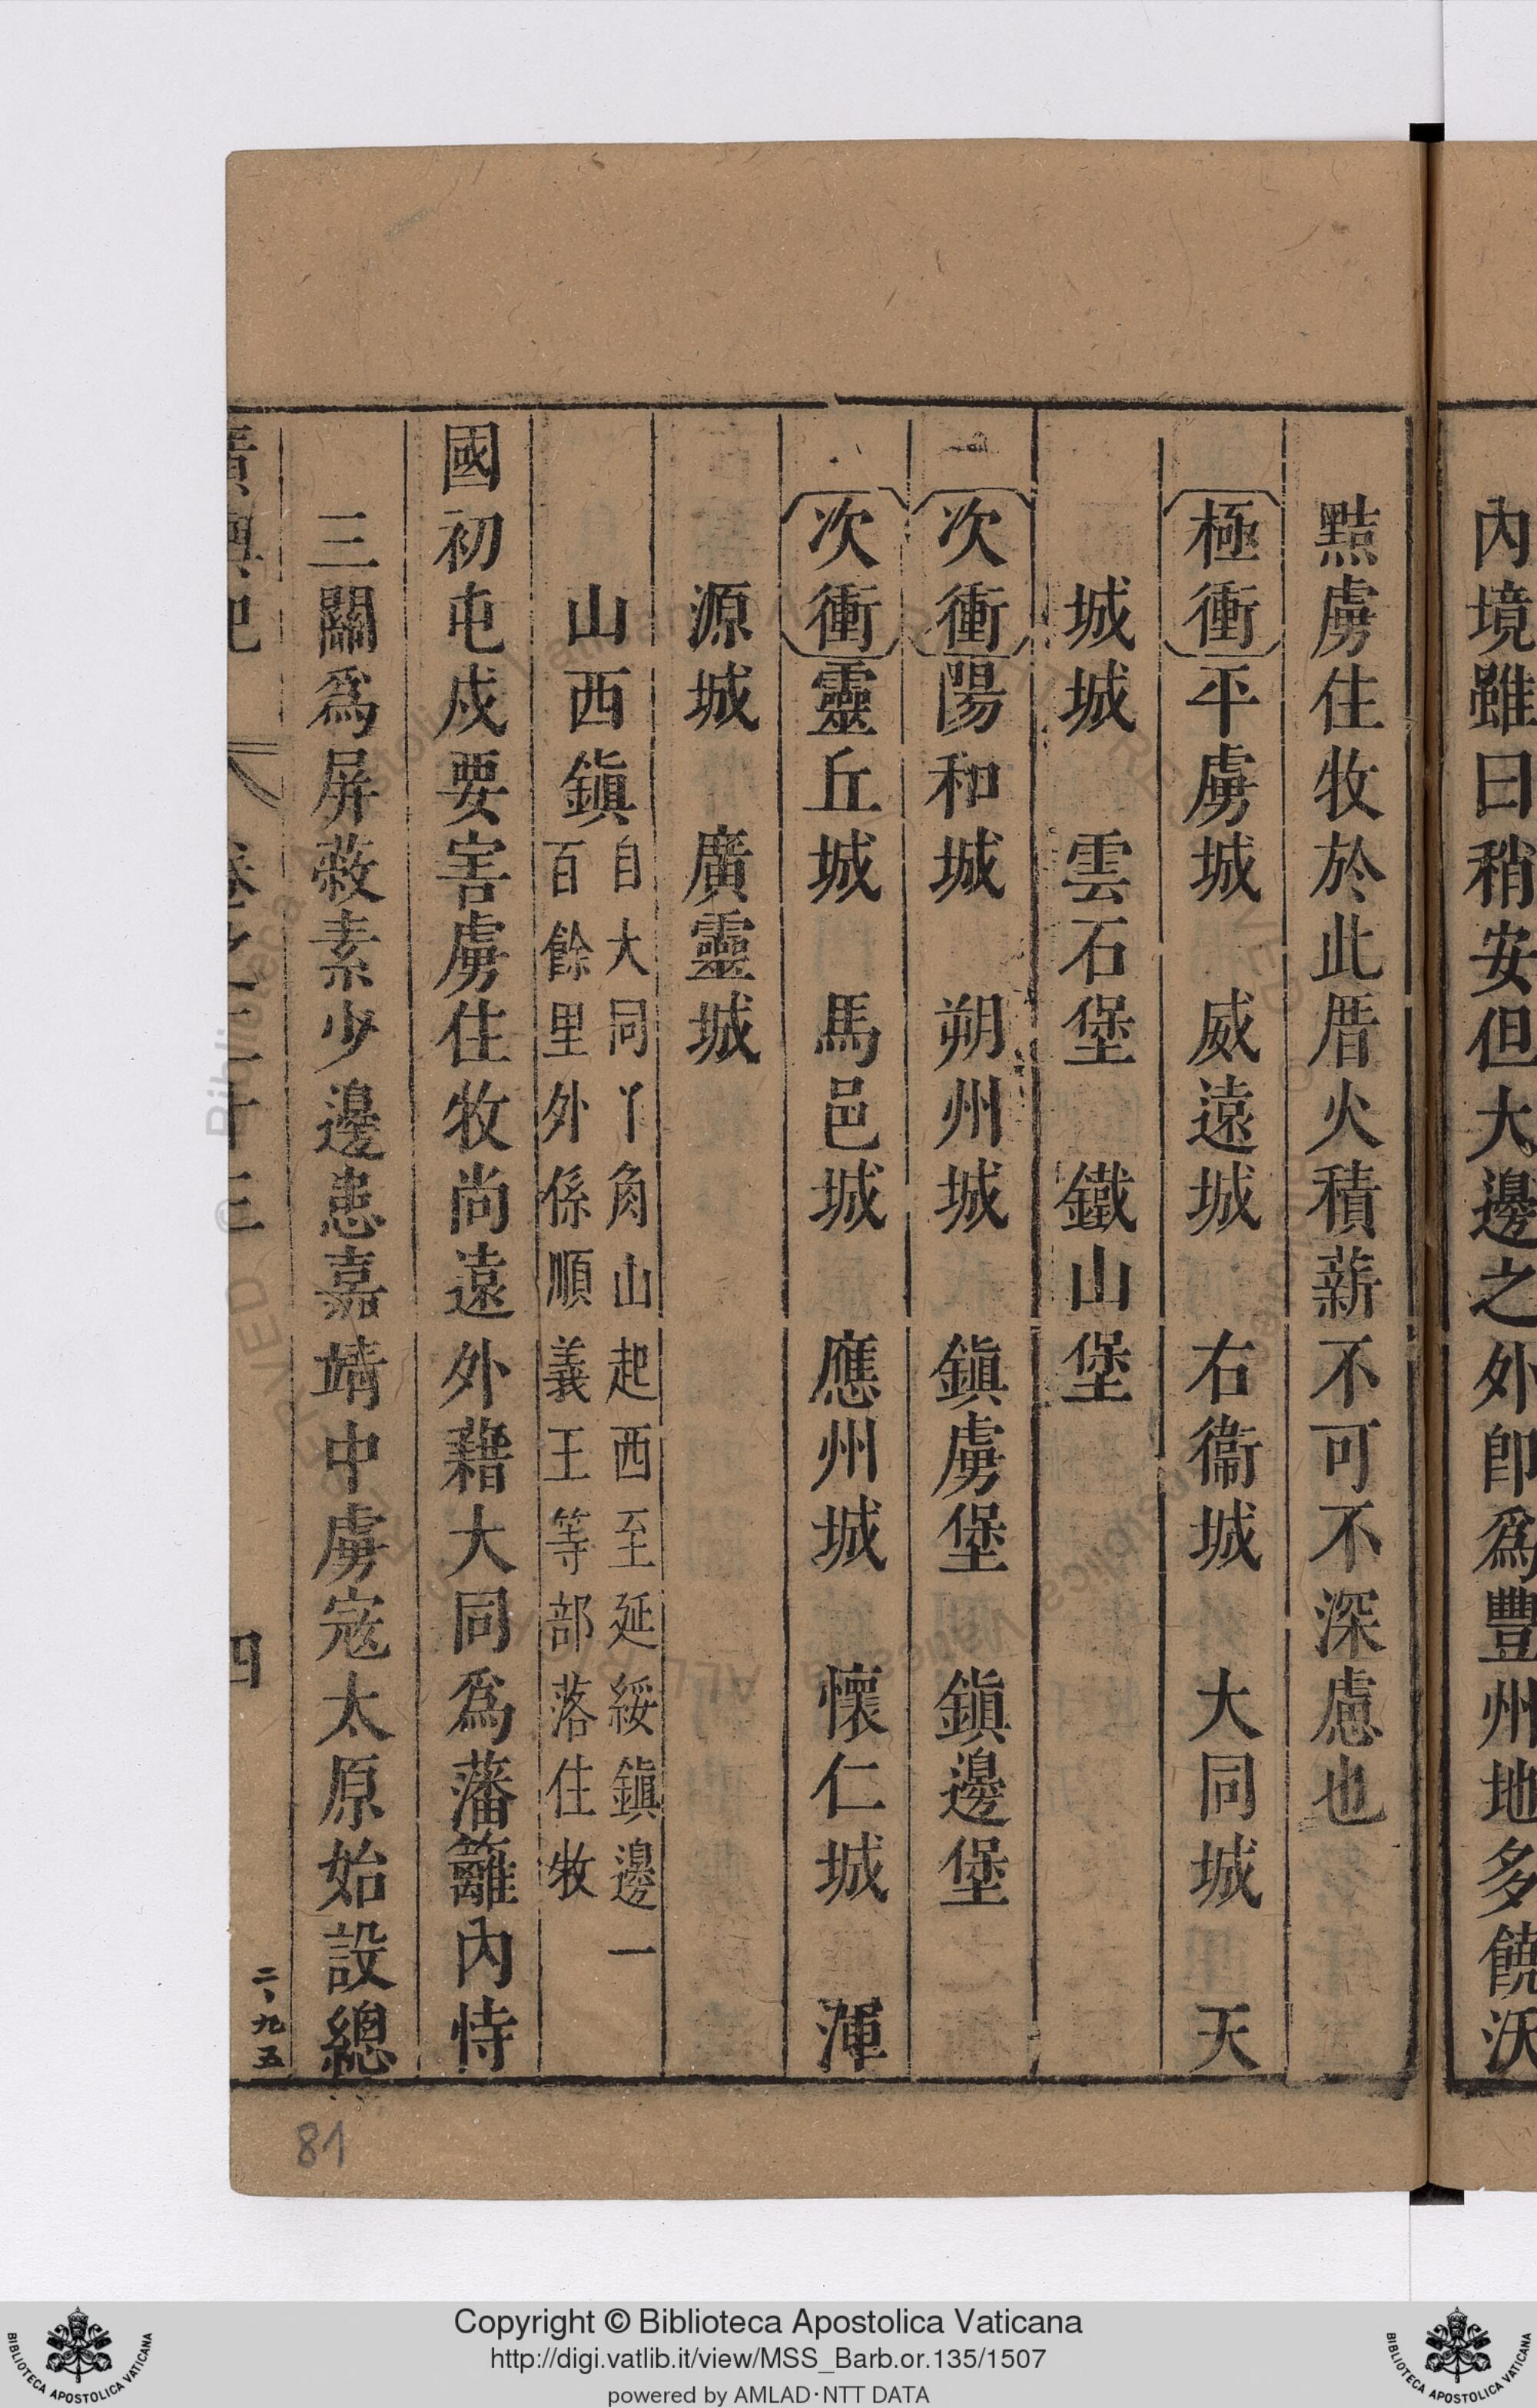 內境雖曰稍安但大邊之外卽爲豐州地多饒沃
黠虜住牧於此厝火積薪不可不深慮也
極衝平虜城 威遠城 右衞城 大同城 天
城城 雲石堡 鐵山堡
次衝陽和城 朔州城 鎭虜堡 鎭邊堡
次衝靈丘城 馬邑城 應州城 懷仁城 渾
源城 廣靈城
山西鎭自大同丫角山起西至延綏鎭邊一
百餘里外係順義王等部落住牧
國初屯戍要害虜住牧尚遠外藉大同爲藩籬內恃
三關爲屏蔽素少邊患嘉靖中虜寇太原始設總
廣輿記 卷之二十三 四
二、九五
81
Copyright © Biblioteca Apostolica Vaticana
http://digi.vatlib.it/view/MSS_Barb.or.135/1507
powered by AMLAD·NTT DATA
BIBLIOTECA APOSTOLICA VATICANA
BIBLIOTECA APOSTOLICA VATICANA